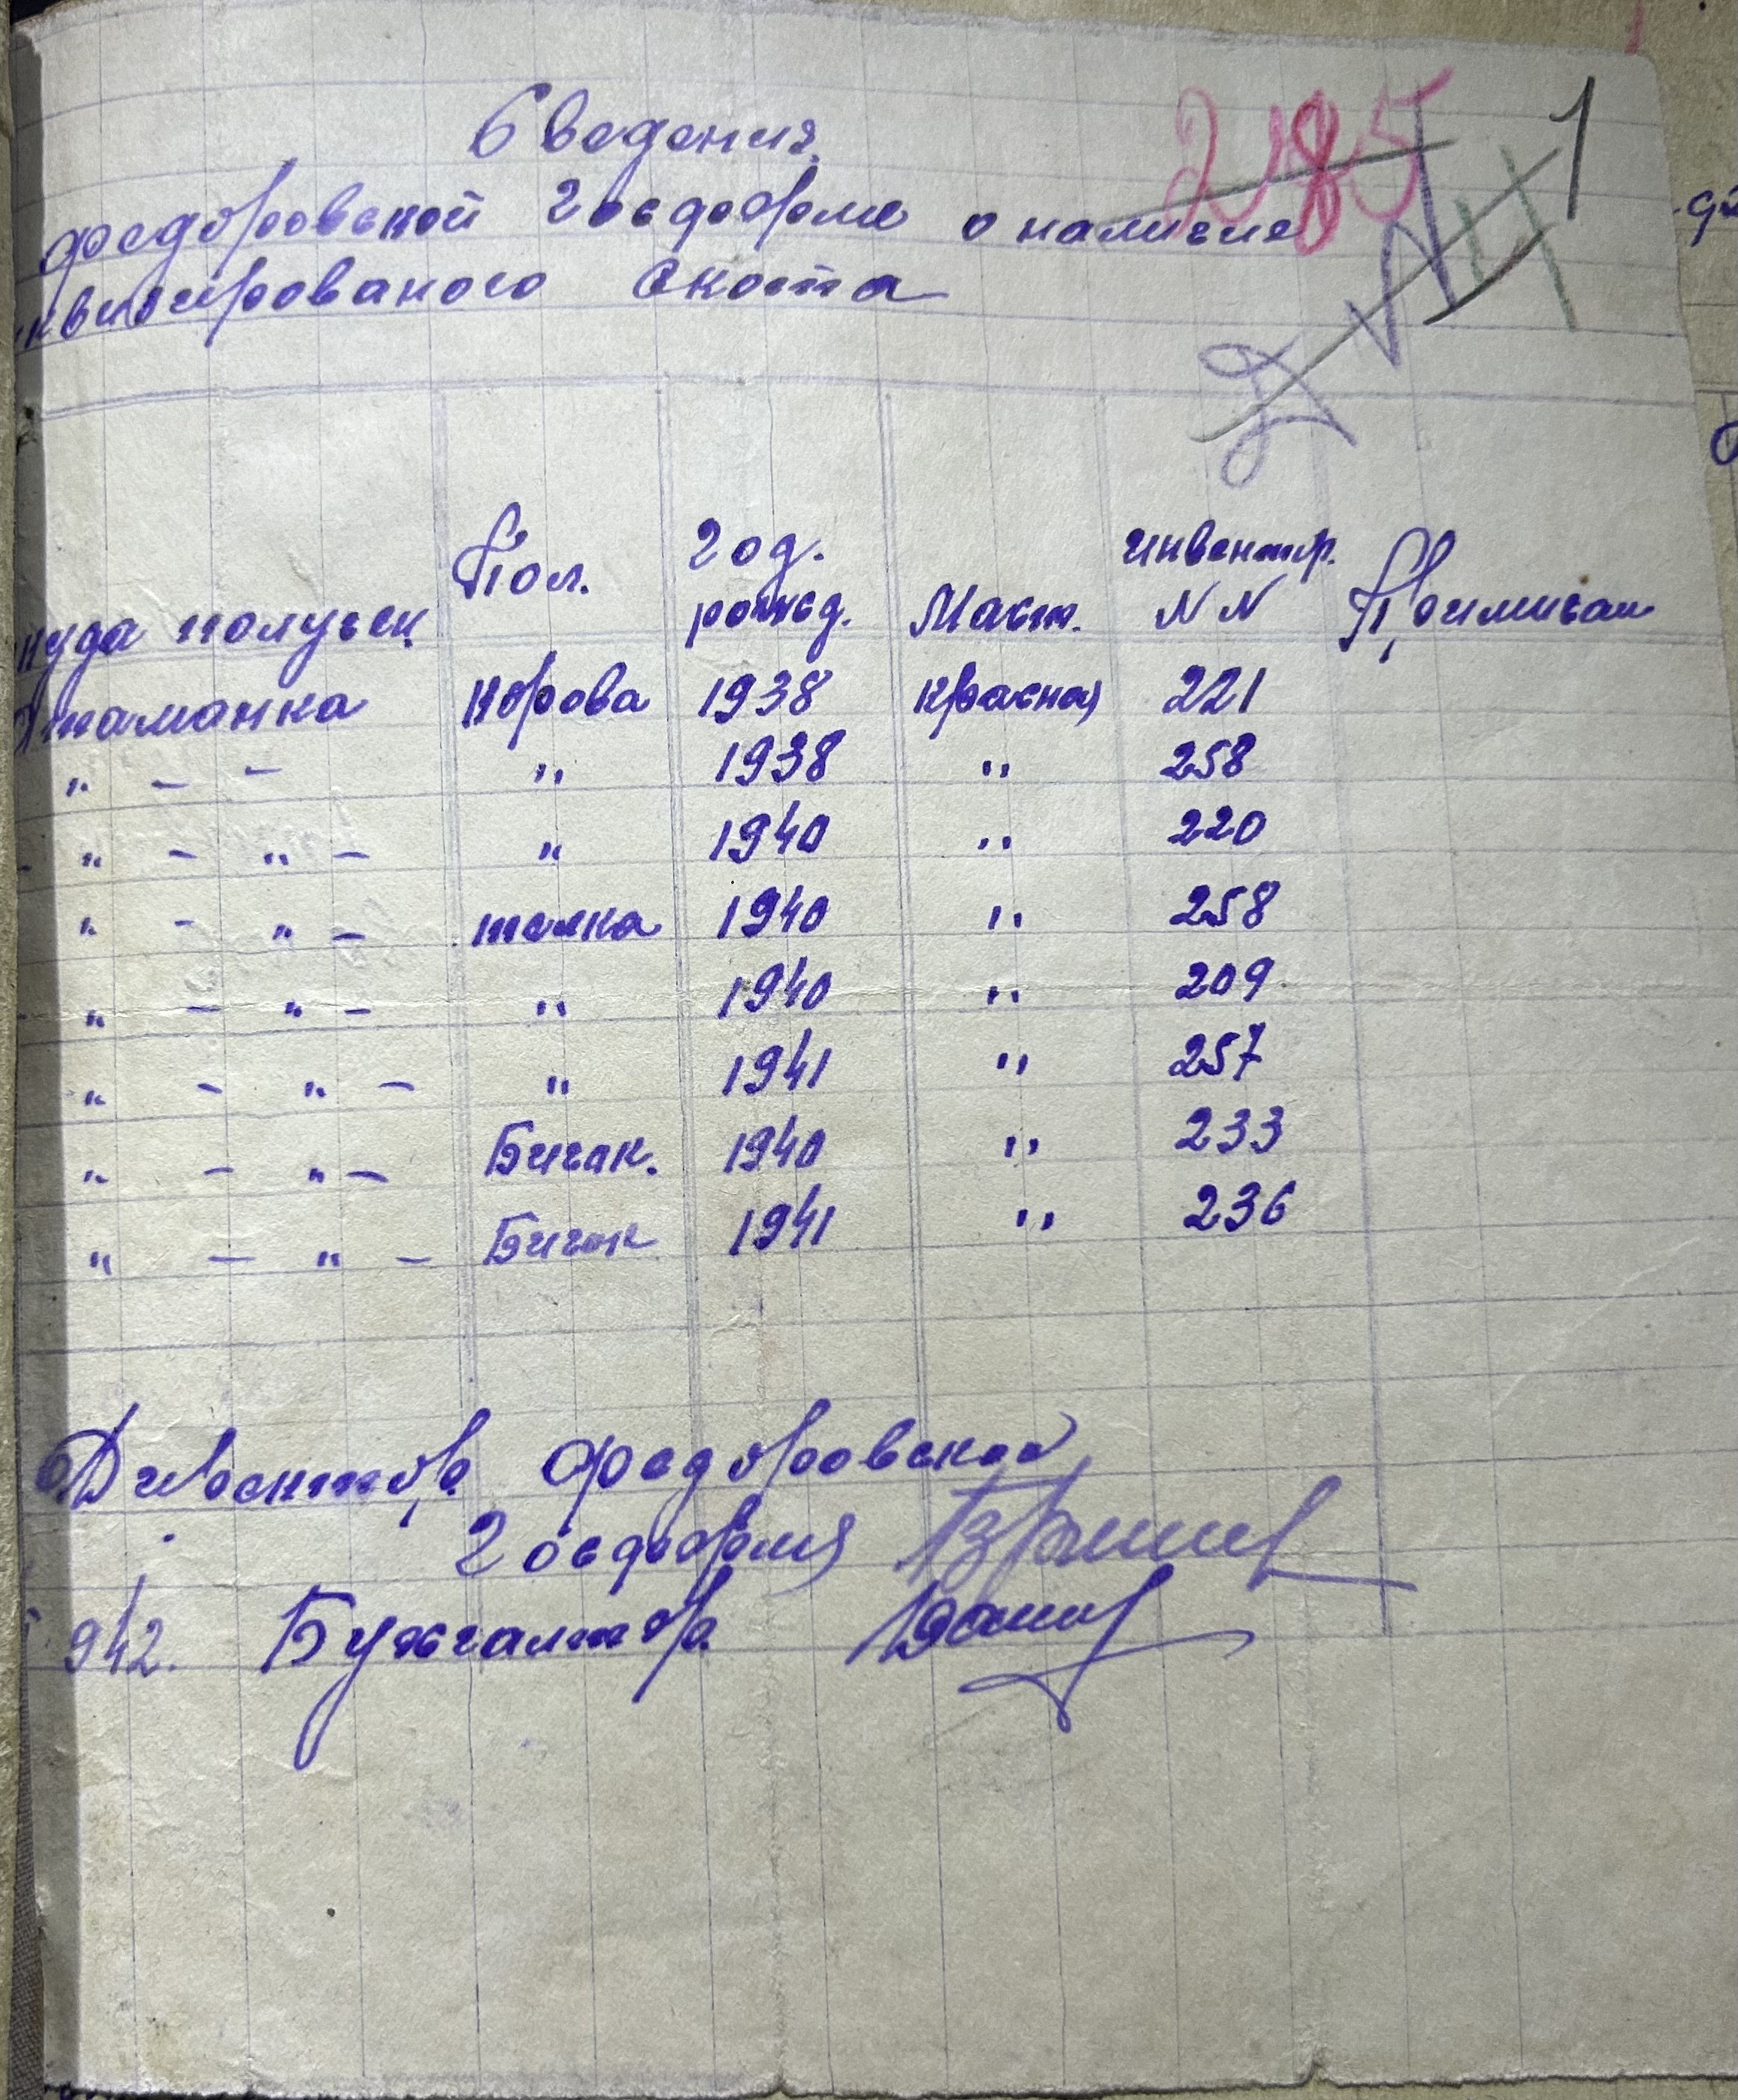 Сведения
федоровской госдоформе о наличие
квизированого скота
285
1
куда получен Пол. Год. рожед. Маст. Инвентр. N N Примичан
Атаманка корова 1938 красная 221
" - - " 1938 " 258
- " - " - " 1940 " 220
" - " - телка 1940 " 258
- " - " - " 1940 " 209
" - " - " 1941 " 257
" - " - Бичак. 1940 " 233
" - " - Бичак 1941 " 236
Директор Федоровской
Госдоформя
942. Бухгалтор